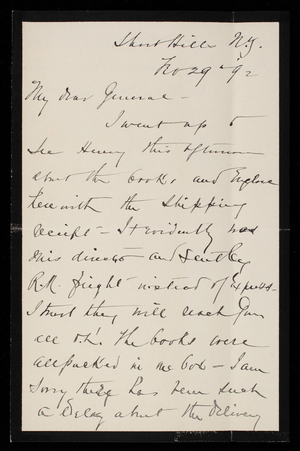 Short Hills N.J.
Feb 29th 92
My dear General -
I went up to
see Henry this afternoon
about the books and Enclose
herewith the Shipping
receipt - It evidently was
mis directed and sent by
R.R. freight instead of Express -
I trust they will reach you
all o.k. The books were
all packed in one box - I am
sorry there has been such
a delay about the delivery